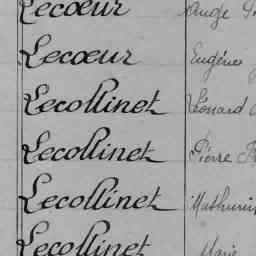 Lecœur Ange
Lecœur Eugène
Lecollinet Léonard
Lecollinet Pierre
Lecollinet Mathurin
Lecollinet Marie